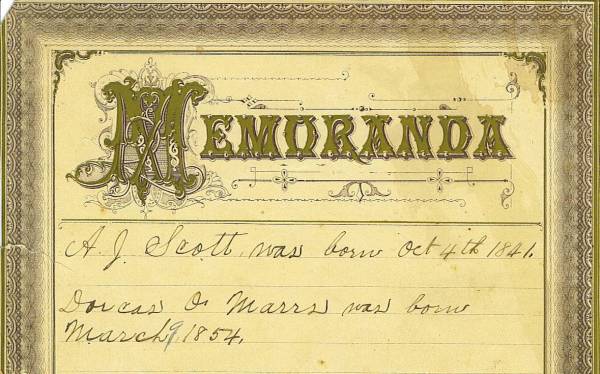 MEMORANDA
A. J. Scott was born Oct 4th 1841.
Dorcas O. Marrs was born
March 9, 1854.